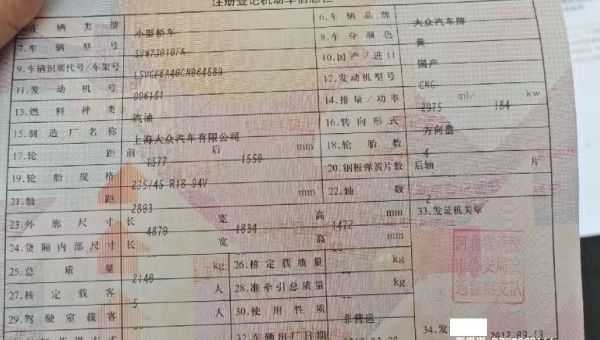 注册登记机动车信息栏
5.车辆类型 小型轿车 6.车辆品牌 大众汽车牌
7.车辆型号 8.车身颜色 黄
9.车辆识别代号/车架号 10.国产/进口 国产
11.发动机号 006151 12.发动机型号 CNG
13.燃料种类 汽油 14.排量/功率 2975 ml/ 184 kw
15.制造厂名称 上海大众汽车有限公司 16.转向形式 方向盘
17.轮距 前 1577 后 1550 mm 18.轮胎数 4
19.轮胎规格 235/45 R18 94V 20.钢板弹簧片数 后轴 片
21.轴距 2803 mm 22.轴数 2
23.外廓尺寸 长 4870 宽 1834 高 1472 mm 33.发证机关章
24.货厢内部尺寸 长 宽 高 mm
25.总质量 2140 kg 26.核定载质量 kg
27.核定载客 5 人 28.准牵引总质量 kg
29.驾驶室载客 人 30.使用性质 非营运
32.车辆出厂日期 34.发 2012-09-19